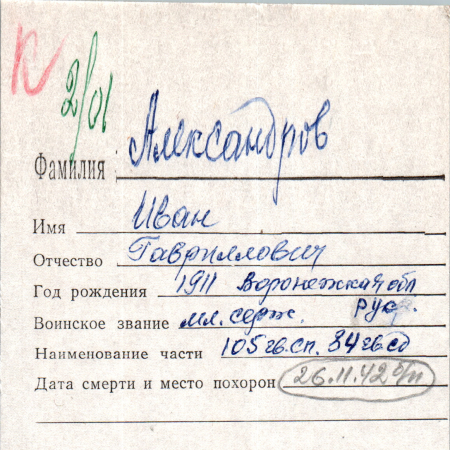 К
2/01
Фамилия Александров
Имя Иван
Отчество Гавриллович
Год рождения 1911 Воронежская обл
Воинское звание мл. серж. русс.
Наименование части 105 гв. сп. 34 гв сд
Дата смерти и место похорон 26.11.42 б/п